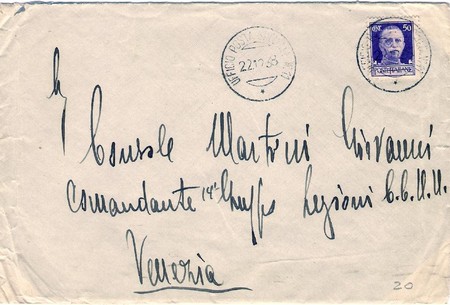 UFFICIO POSTA
22.12.38
CENT. 50
POSTE ITALIANE
Console Martini Giovanni
Comandante 14° Gruppo Legioni C.C.N.N.
Venezia
20